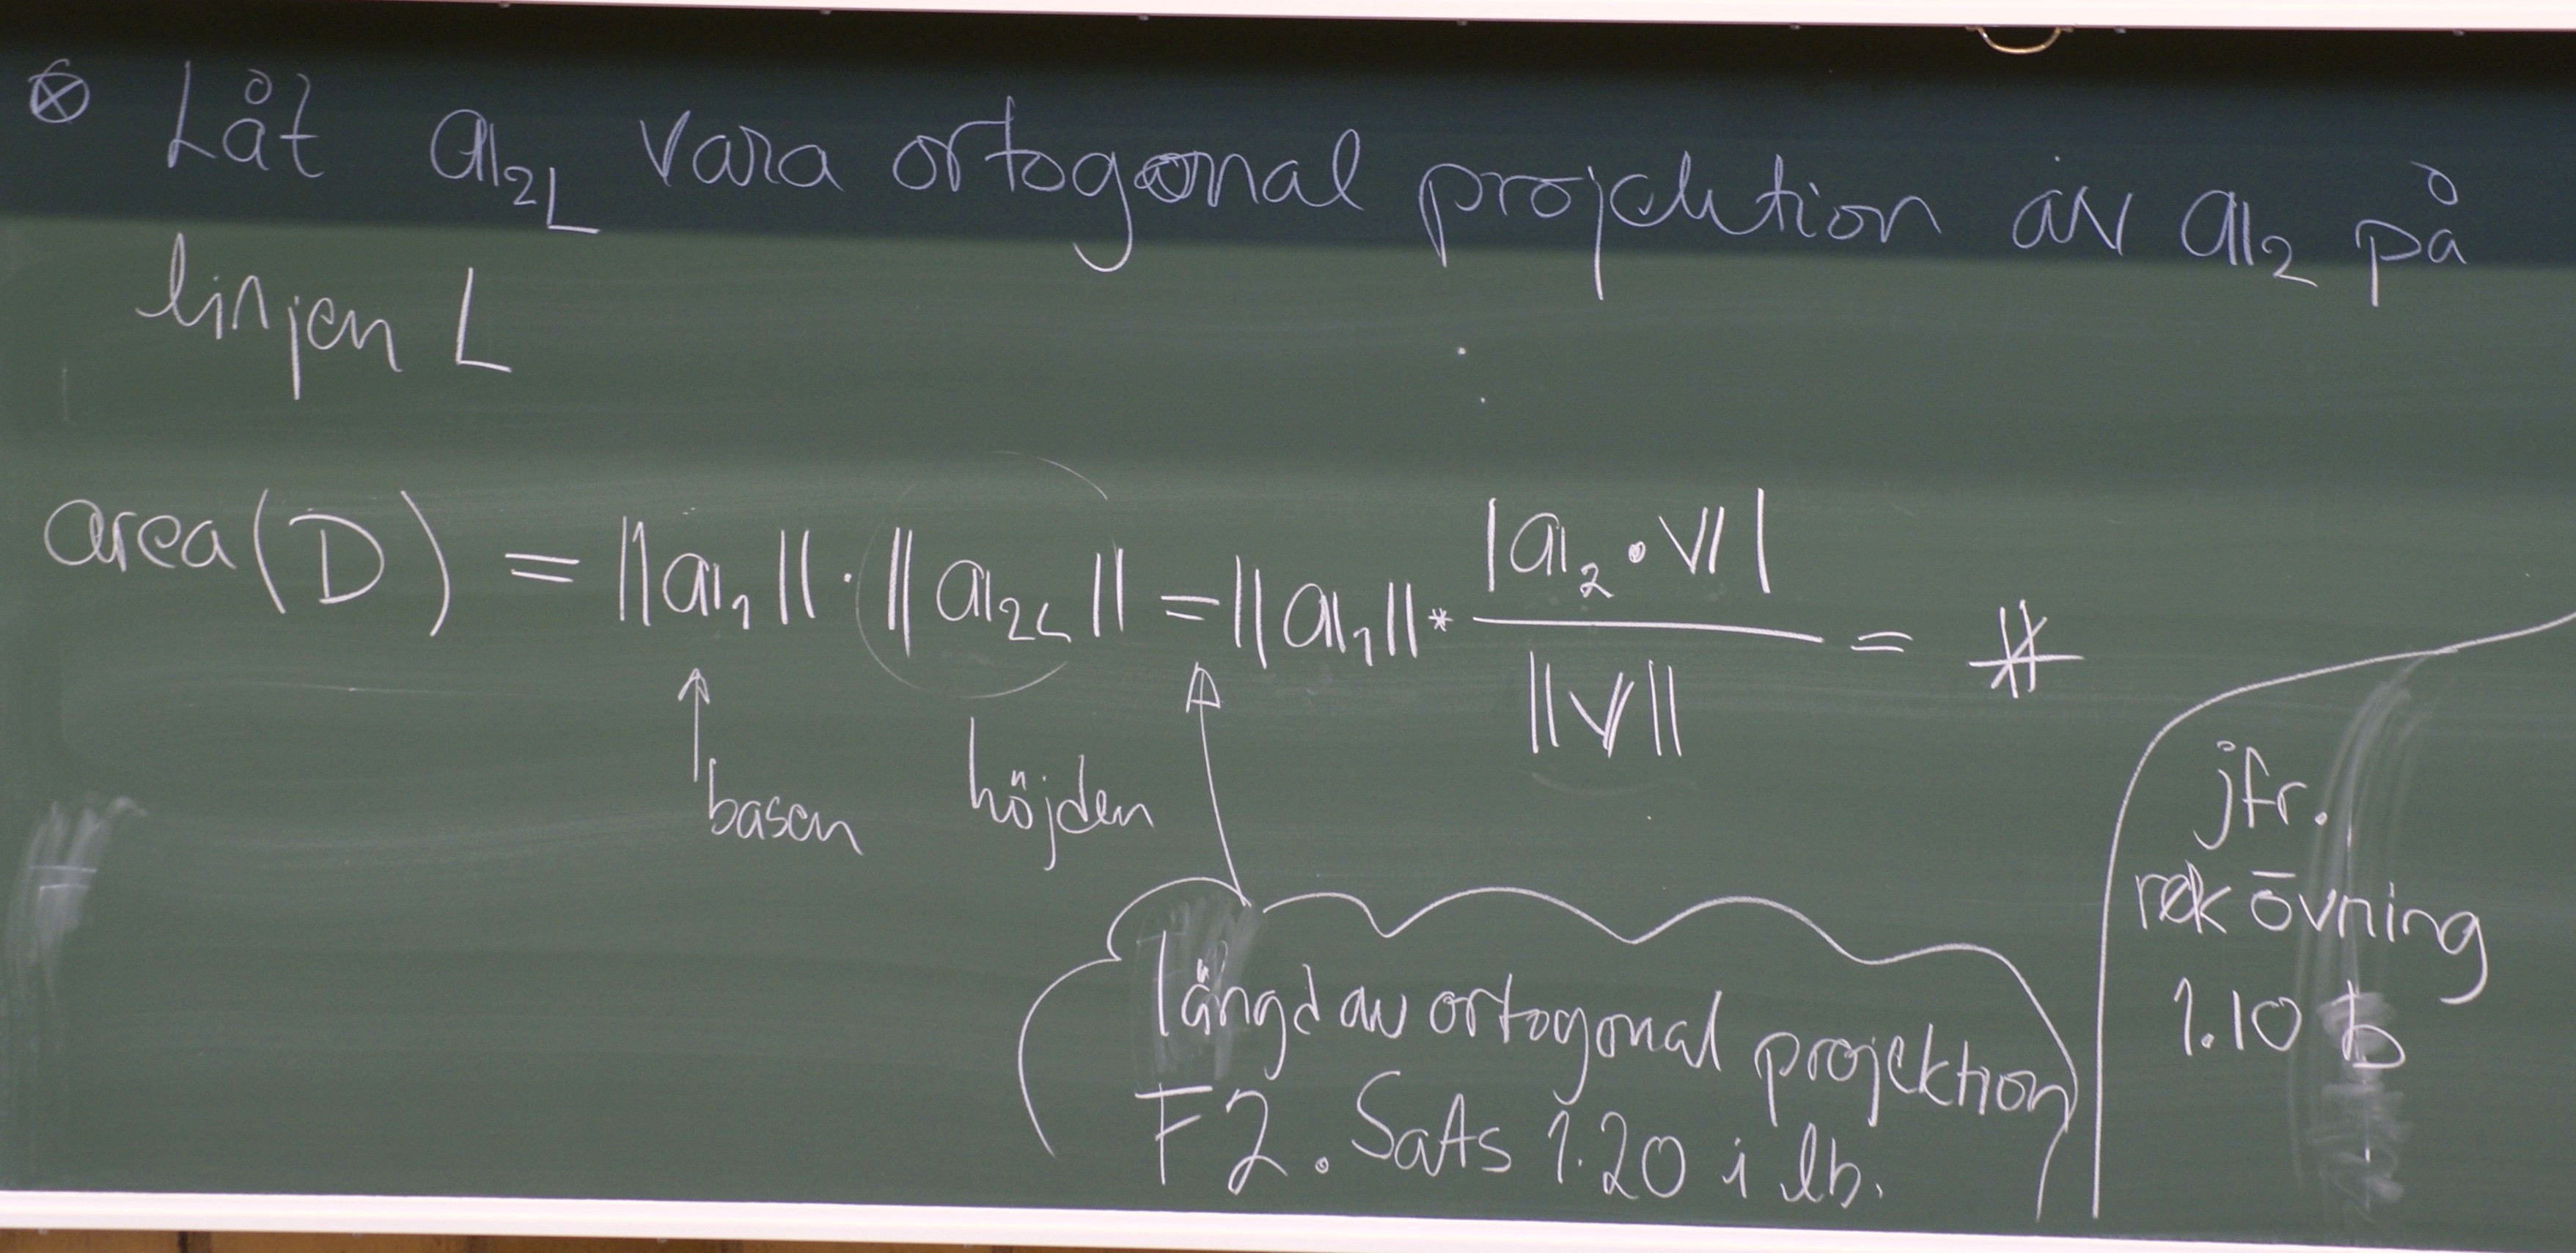 ⊗ Låt a₂L vara ortogonal projektion av a₂ på
linjen L
area(D) = ||a₁|| · ||a₂L|| = ||a₁|| * |a₂ • v| / ||v|| = #
↑ basen
höjden
längd av ortogonal projektion
F2. Sats 1.20 i lb.
jfr.
rek övning
1.10 b